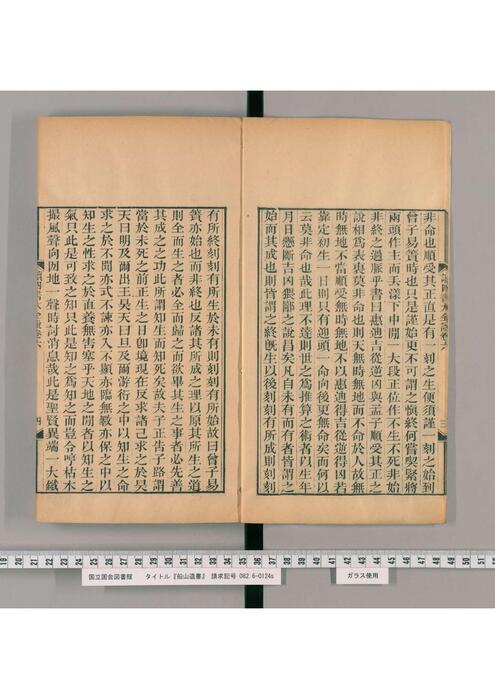 非命也順受其正直是有一刻之生便須謹一刻之始到
曾子易簀時也只是謹始更不可謂之愼終何嘗喫緊將
兩頭作主而丟漾下中閒一大段正位作不生不死非始
非終之過脈乎書曰惠迪吉從逆凶與孟子順受其正之
說相爲表裏莫非命也則天無時無地而不命於人故無
時無地不當順受無時無地不以惠迪得吉從逆得凶若
靠定初生一日則只有迎頭一命向後更無命矣而何以
云莫非命也哉此理不達則世之爲推算之術者以生年
月日懸斷吉凶猥鄙之說昌矣凡自未有而有者皆謂之
始而其成也則皆謂之終旣生以後刻刻有所成則刻刻
三
有所終刻刻有所生於未有則刻刻有所始故曰曾子易
簀亦始也而非終也反諸其所成之理以原其所生之道
則全而生之者必全而歸之而欲畢其生之事者必先善
其成之之功此所謂知生而知死矣故夫子正告子路謂
當於未死之前正生之日卽境現在反求諸己求之於昊
天曰明及爾出王昊天曰旦及爾游衍之中以知生之命
求之於不聞亦式不諫亦入不顯亦臨無斁亦保之中以
知生之性求之於直養無害塞乎天地之閒者以知生之
氣只此是可致之知只此是知之爲知之而豈令哼枯木
撮風聲向囫地一聲時討消息哉此是聖賢異端一大鐵
讀四書大全說卷六
四
国立国会図書館　タイトル『船山遺書』　請求記号 082.6-0124s
ガラス使用